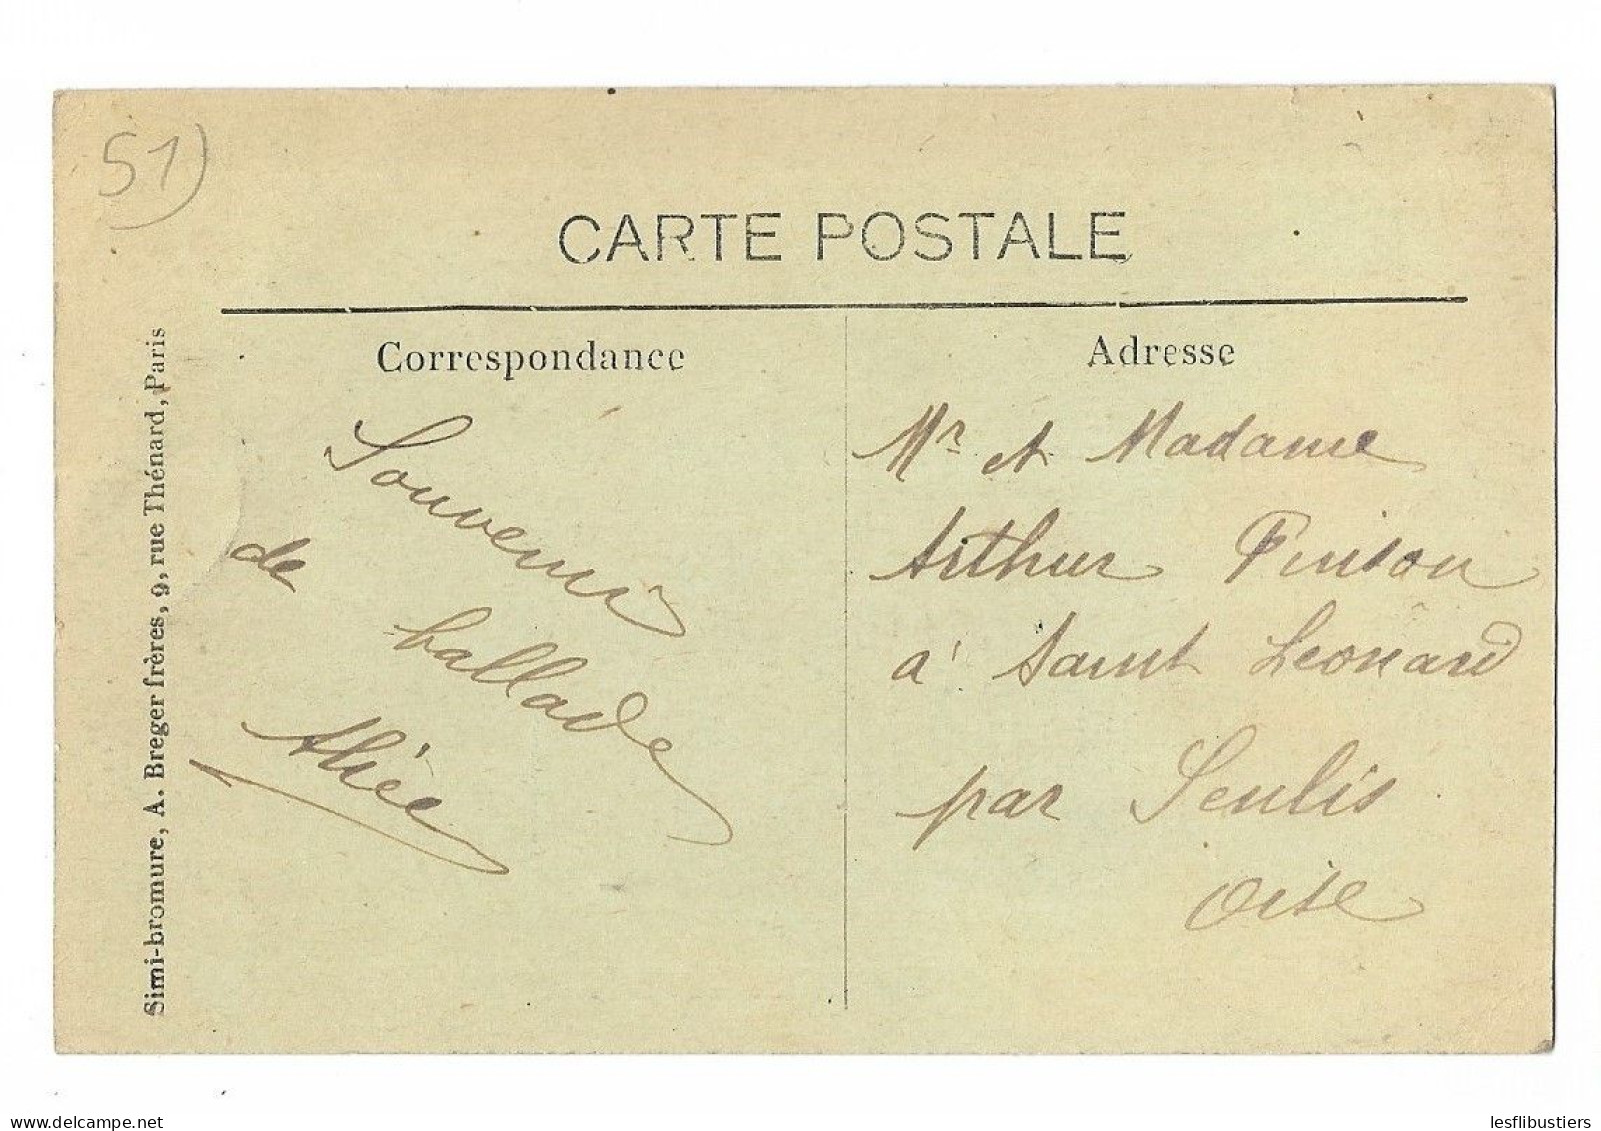 51)
CARTE POSTALE
Correspondance
Souvenir
de
ballade
Alice
Adresse
Mr et Madame
Arthur
à Saint Leonard
par Senlis
Oise
Simi-bromure, A. Breger frères, 9, rue Thénard, Paris
delcampe.net
lesflibustiers